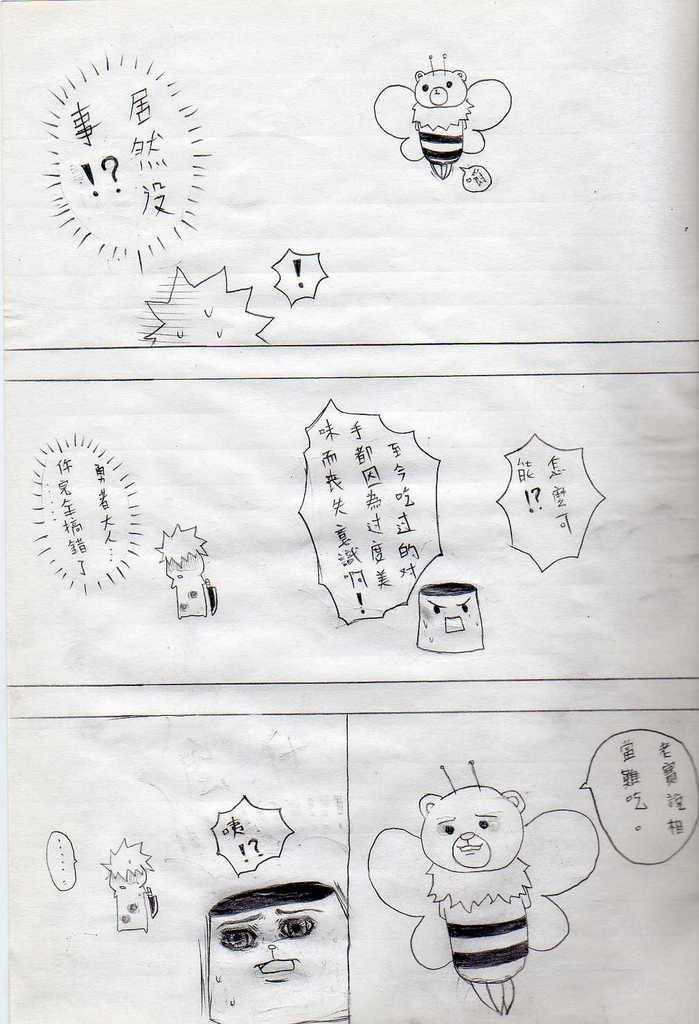 居然没
事!?
!
怎麼可
能!?
至今吃过的对
手都因為过度美
味而喪失意識啊!
勇者大人…
你完全搞錯了
……
老實說相
當難吃。
咦!?
......